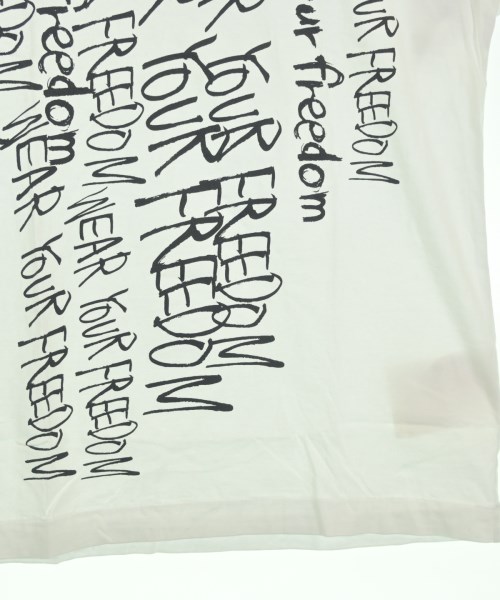 UR FREEDOM
ur freedom
YOUR FREEDOM
YOUR FREEDOM
FREEDOM WEAR YOUR FREEDOM
freedom
WEAR YOUR FREEDOM